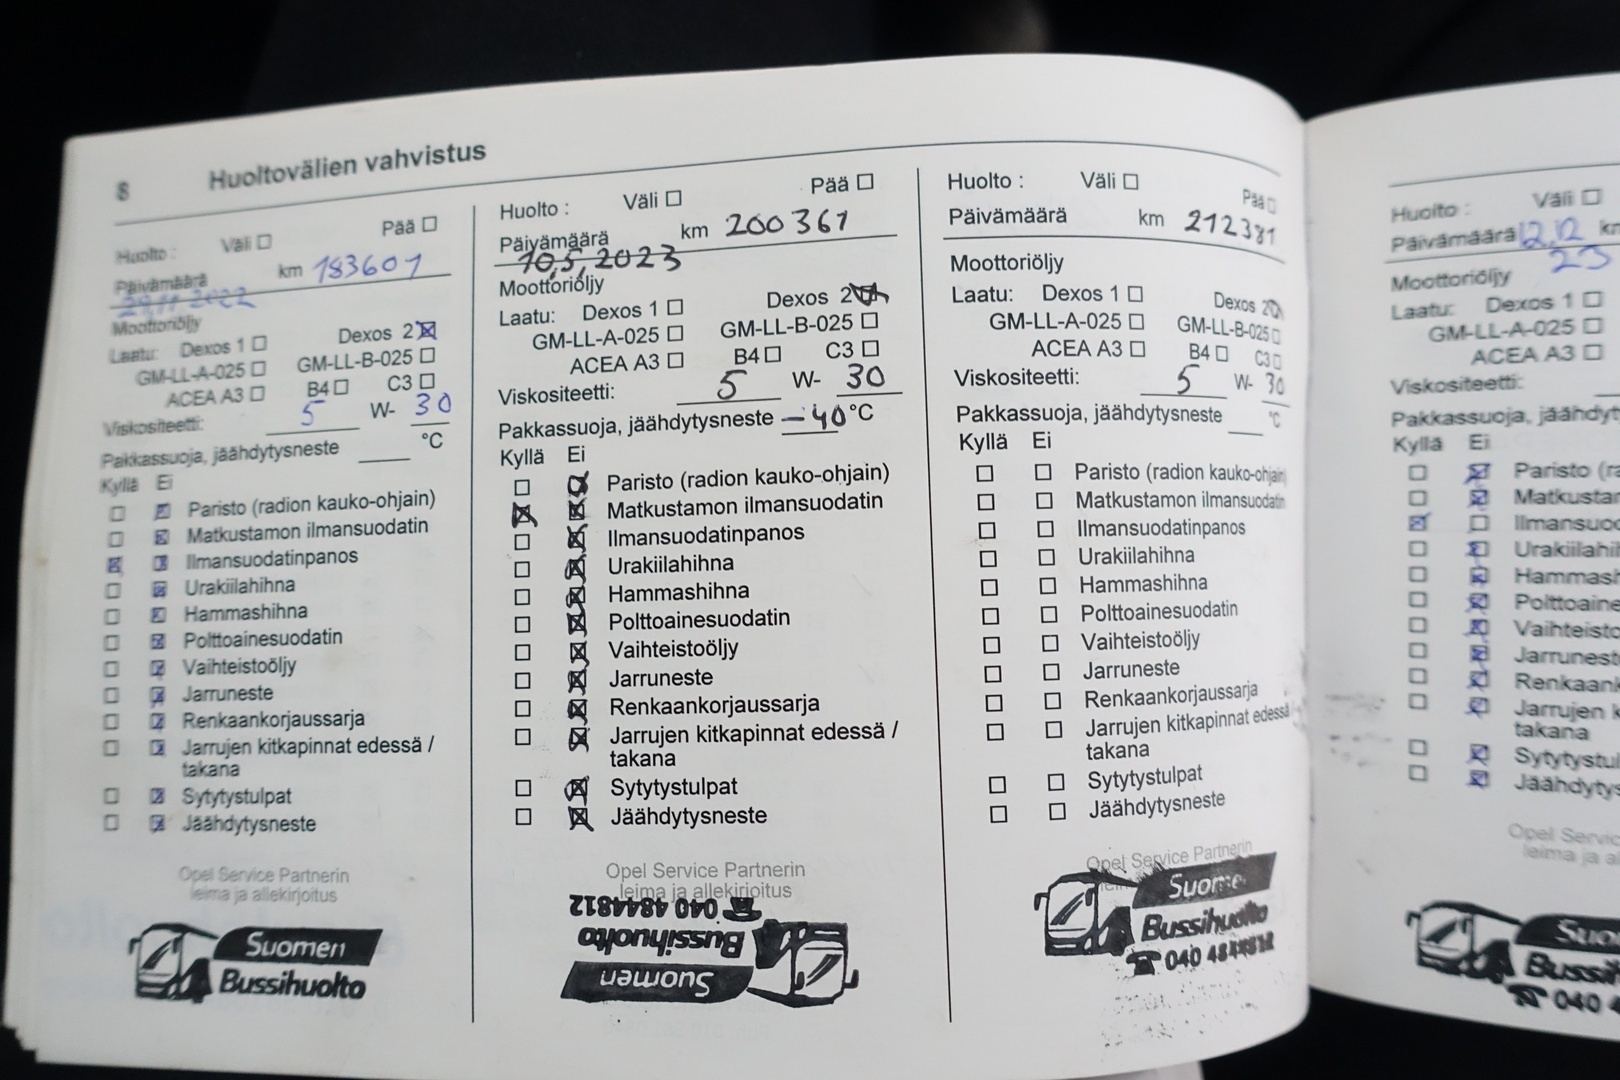 8 Huoltovälien vahvistus
Huolto : Väli Pää
Päivämäärä km 183601
29.11 2022
Moottoriöljy
Laatu: Dexos 1 Dexos 2
GM-LL-A-025 GM-LL-B-025
ACEA A3 B4 C3
Viskositeetti: 5 W- 30
Pakkassuoja, jäähdytysneste °C
Kyllä Ei
Paristo (radion kauko-ohjain)
Matkustamon ilmansuodatin
Ilmansuodatinpanos
Urakiilahihna
Hammashihna
Polttoainesuodatin
Vaihteistoöljy
Jarruneste
Renkaankorjaussarja
Jarrujen kitkapinnat edessä /
takana
Sytytystulpat
Jäähdytysneste
Opel Service Partnerin
leima ja allekirjoitus
Suomen
Bussihuolto
Huolto : Väli Pää
Päivämäärä km 200361
10,5,2023
Moottoriöljy
Laatu: Dexos 1 Dexos 2
GM-LL-A-025 GM-LL-B-025
ACEA A3 B4 C3
Viskositeetti: 5 W- 30
Pakkassuoja, jäähdytysneste -40 °C
Kyllä Ei
Paristo (radion kauko-ohjain)
Matkustamon ilmansuodatin
Ilmansuodatinpanos
Urakiilahihna
Hammashihna
Polttoainesuodatin
Vaihteistoöljy
Jarruneste
Renkaankorjaussarja
Jarrujen kitkapinnat edessä /
takana
Sytytystulpat
Jäähdytysneste
Opel Service Partnerin
leima ja allekirjoitus
Suomen
Bussihuolto
040 4844812
Huolto : Väli Pää
Päivämäärä km 212381
Moottoriöljy
Laatu: Dexos 1 Dexos 2
GM-LL-A-025 GM-LL-B-025
ACEA A3 B4 C3
Viskositeetti: 5 W- 30
Pakkassuoja, jäähdytysneste °C
Kyllä Ei
Paristo (radion kauko-ohjain)
Matkustamon ilmansuodatin
Ilmansuodatinpanos
Urakiilahihna
Hammashihna
Polttoainesuodatin
Vaihteistoöljy
Jarruneste
Renkaankorjaussarja
Jarrujen kitkapinnat edessä /
takana
Sytytystulpat
Jäähdytysneste
Opel Service Partnerin
Suomen
Bussihuolto
040 4844812
Huolto : Väli
Päivämäärä 12,12 km
23
Moottoriöljy
Laatu: Dexos 1
GM-LL-A-025
ACEA A3
Viskositeetti:
Pakkassuoja, jäähdyt
Kyllä Ei
Paristo (ra
Matkustar
Ilmansuod
Urakiilahih
Hammash
Polttoaine
Vaihteisto
Jarrunest
Renkaank
Jarrujen k
takana
Sytytystul
Jäähdytys
Opel Servic
leima ja al
Suo
Bussih
040 4